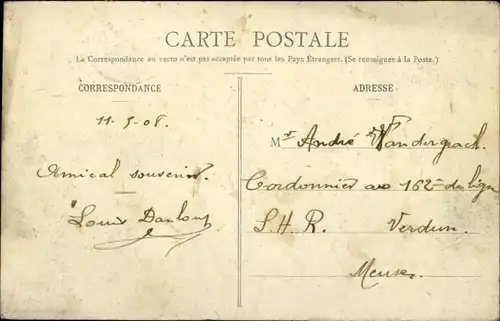 CARTE POSTALE
La Correspondance au verso n'est pas acceptée par tous les Pays Étrangers. (Se renseigner à la Poste.)
CORRESPONDANCE
11-5-08.
Amical souvenir.
Louis Danloup
ADRESSE
Mr André Vandergach
Cordonnier au 162e de ligne
S. H. R. Verdun.
Meuse.